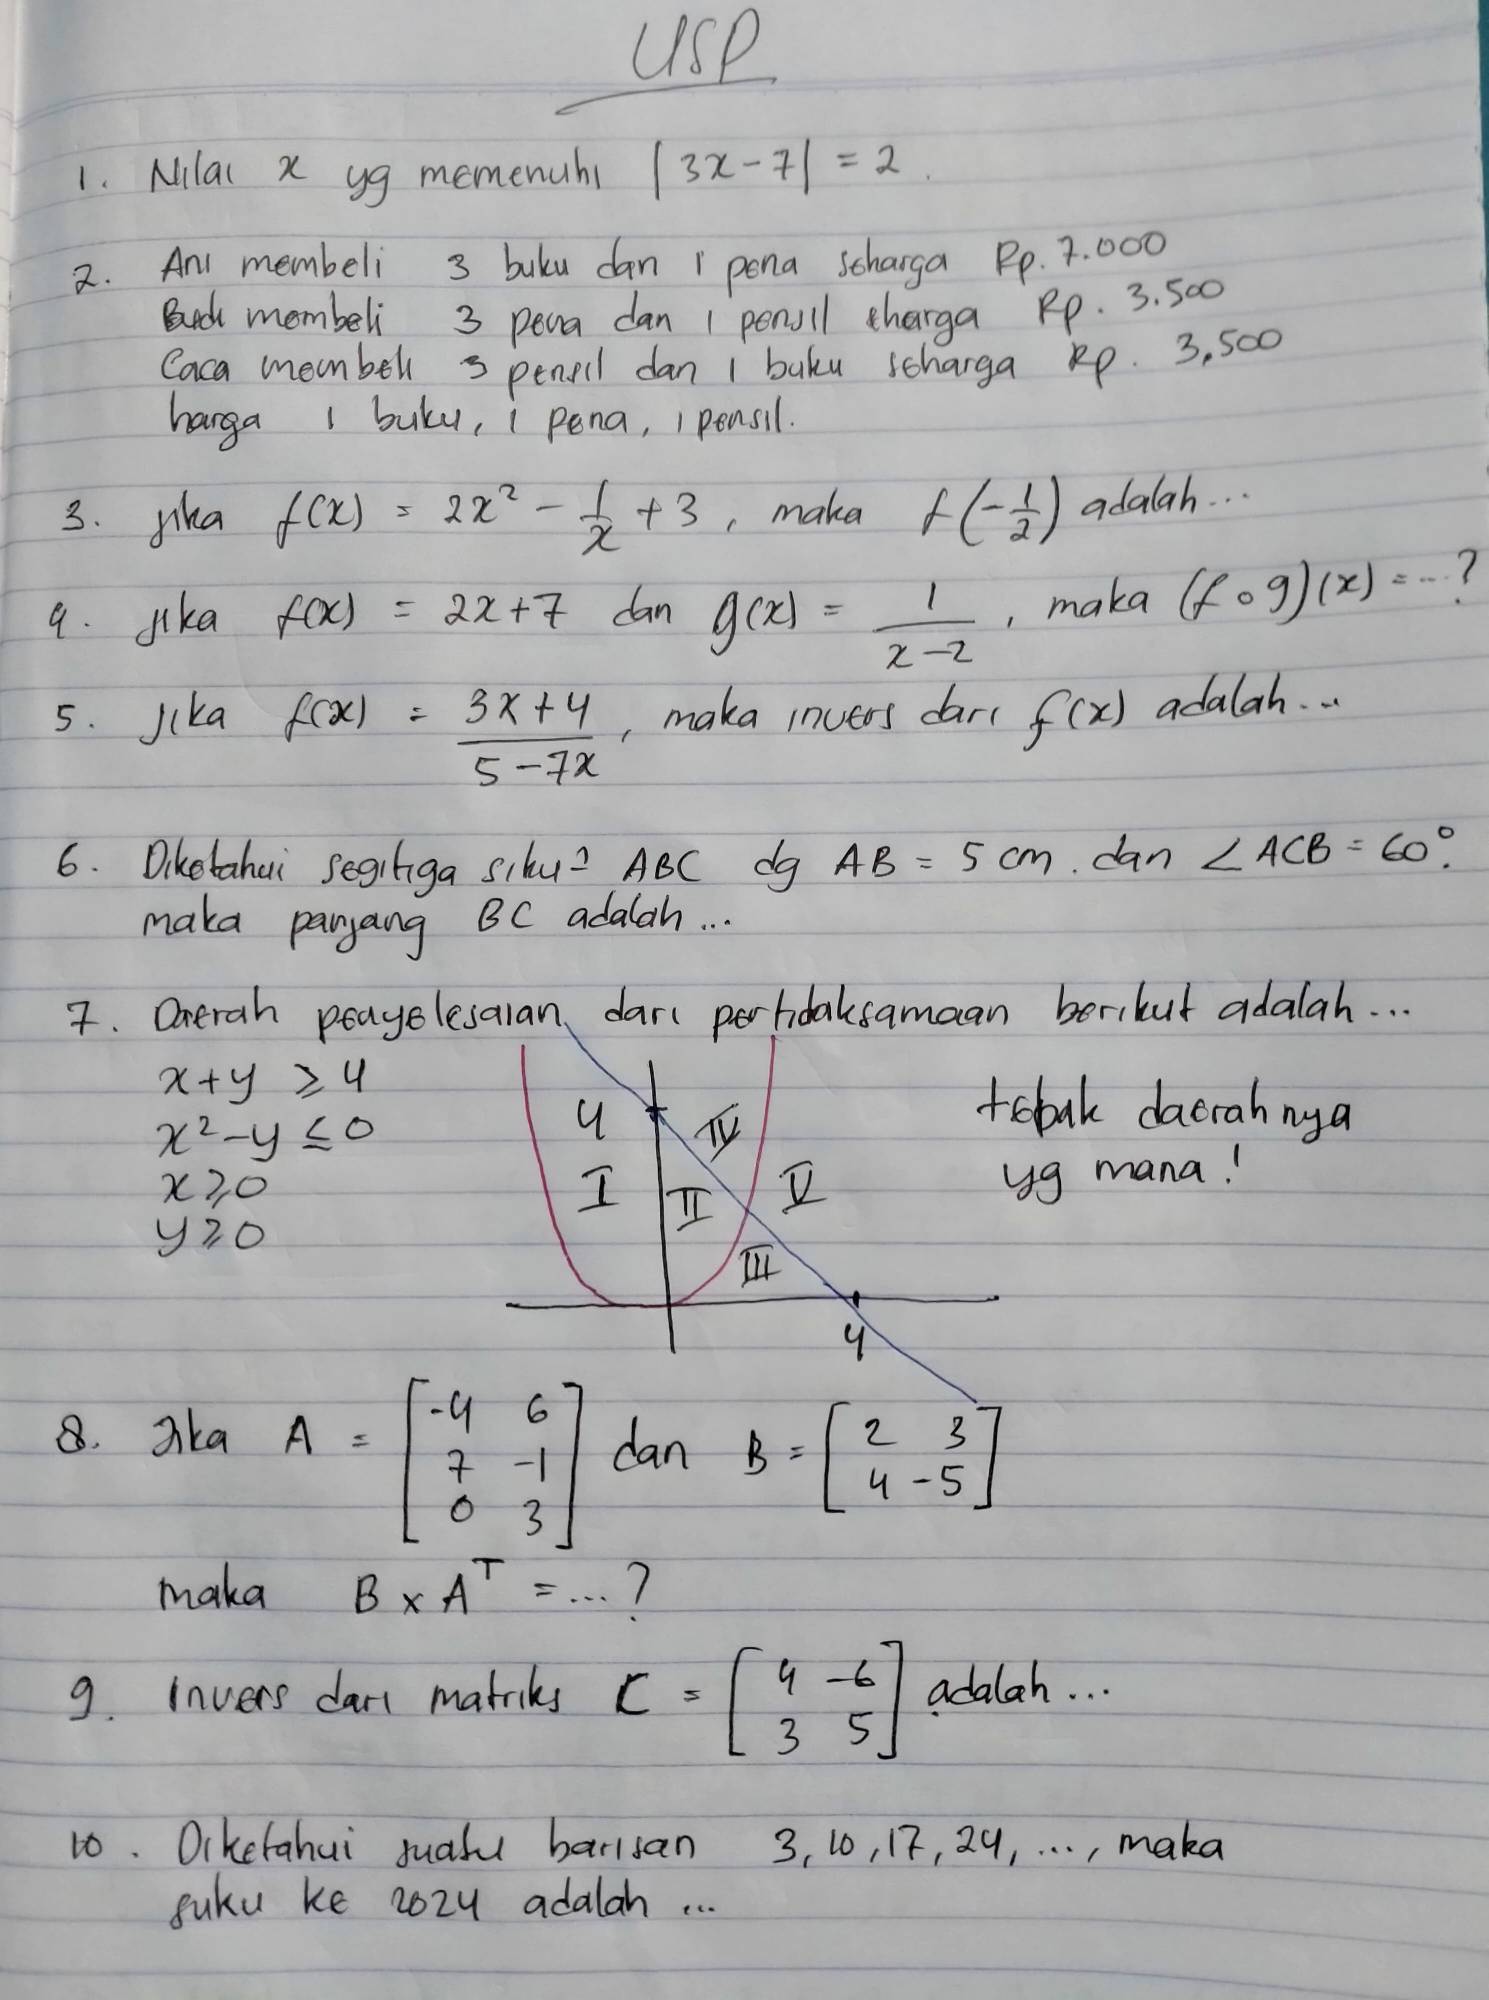 USP
1. Nilai x yg memenuhi |3x-7| = 2.
2. Ani membeli 3 buku dan 1 pena seharga Rp. 7.000
Budi membeli 3 pena dan 1 pensil seharga Rp. 3.500
Caca membeli 3 pensil dan 1 buku seharga Rp. 3,500
harga 1 buku, 1 pena, 1 pensil.
3. Jika f(x) = 2x² - 1/x + 3, maka f(-1/2) adalah...
4. Jika f(x) = 2x+7 dan g(x) = 1/(x-2), maka (f∘g)(x) = ...?
5. Jika f(x) = (3x+4)/(5-7x), maka invers dari f(x) adalah...
6. Diketahui segitiga siku² ABC dg AB = 5 cm. dan ∠ACB = 60°.
maka panjang BC adalah...
7. Daerah penyelesaian dari pertidaksamaan berikut adalah...
x+y ≥ 4
x²-y ≤ 0
x ≥ 0
y ≥ 0
4
IV
I
II
V
III
4
tebak daerahnya
yg mana!
8. Jika A = [-4 6; 7 -1; 0 3] dan B = [2 3; 4 -5]
maka B × Aᵀ = ...?
9. Invers dari matriks C = [4 -6; 3 5] adalah...
10. Diketahui suatu barisan 3, 10, 17, 24, ..., maka
suku ke 2024 adalah ...